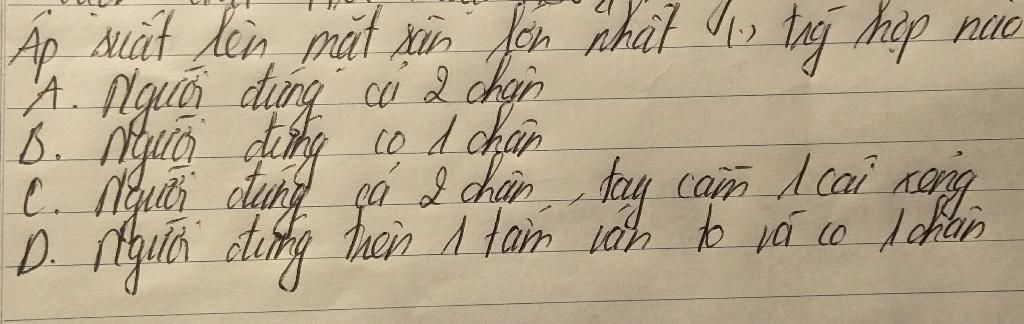 Áp suất lên mặt sàn lớn nhất trg hợp nào
A. Người đứng cả 2 chân
B. Người đứng co 1 chân
C. Người đứng cả 2 chân, tay cầm 1 cái xẻng
D. Người đứng trên 1 tấm ván to và co 1 chân